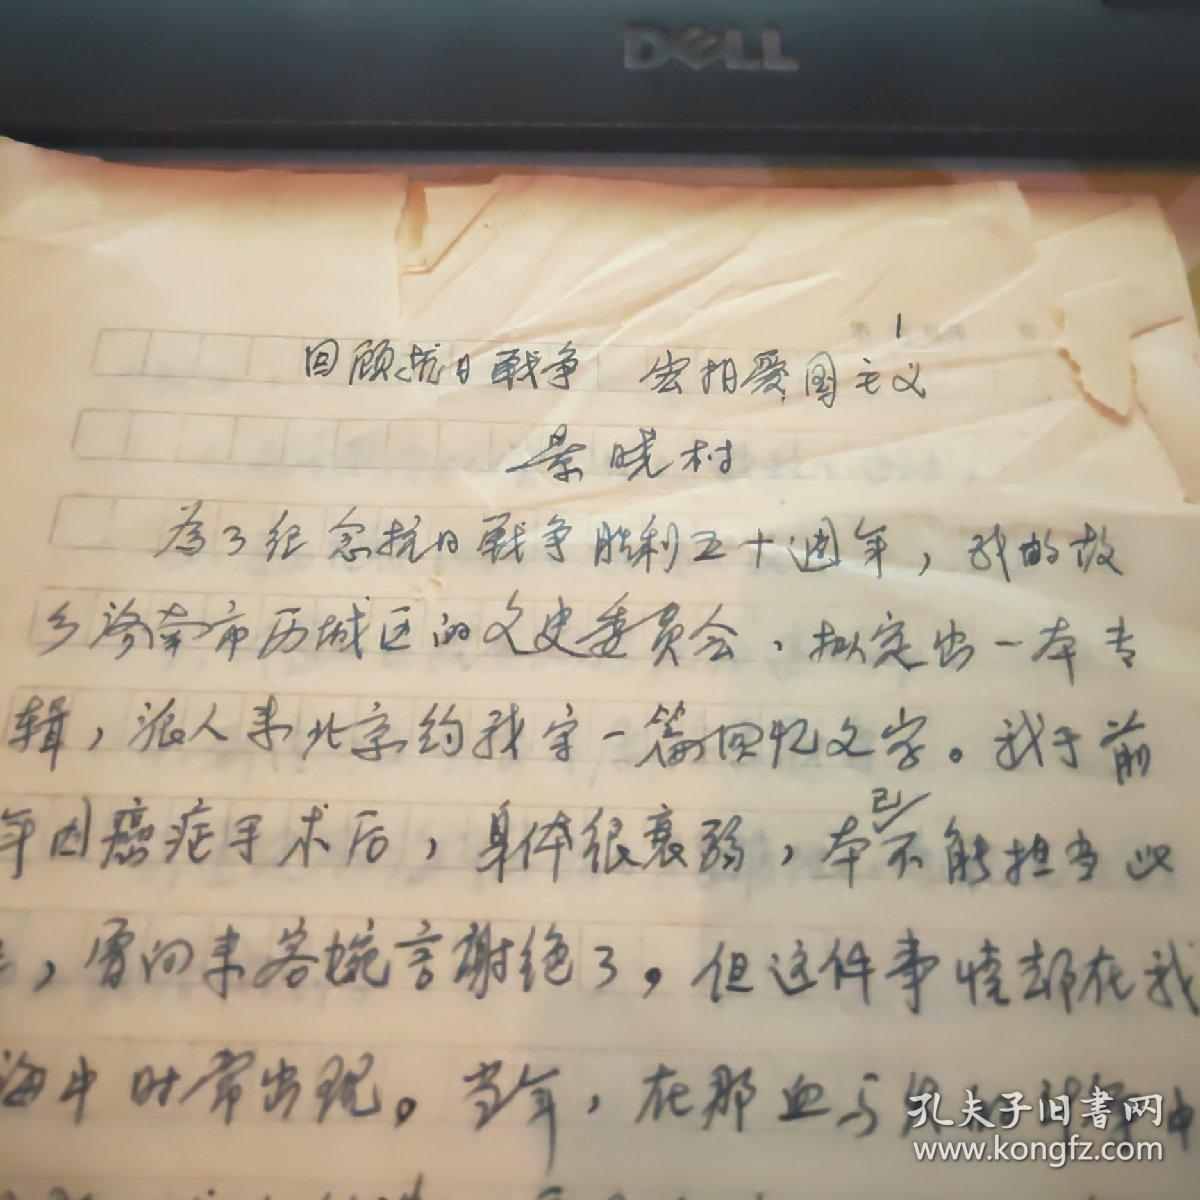 DELL
1
回顾抗日戰争 宏扬爱国主义
景晓村
為了纪念抗日戰争胜利五十週年，我的故
乡济南市历城区的文史委员会，拟定出一本专
辑，派人来北京约我写一篇回忆文字。我于前
年因癌症手术后，身体很衰弱，本已不能担当此
，曾向来客婉言謝绝了。但这件事情却在我
海中时常出现。当年，在那血与火的
孔夫子旧书网
www.kongfz.com